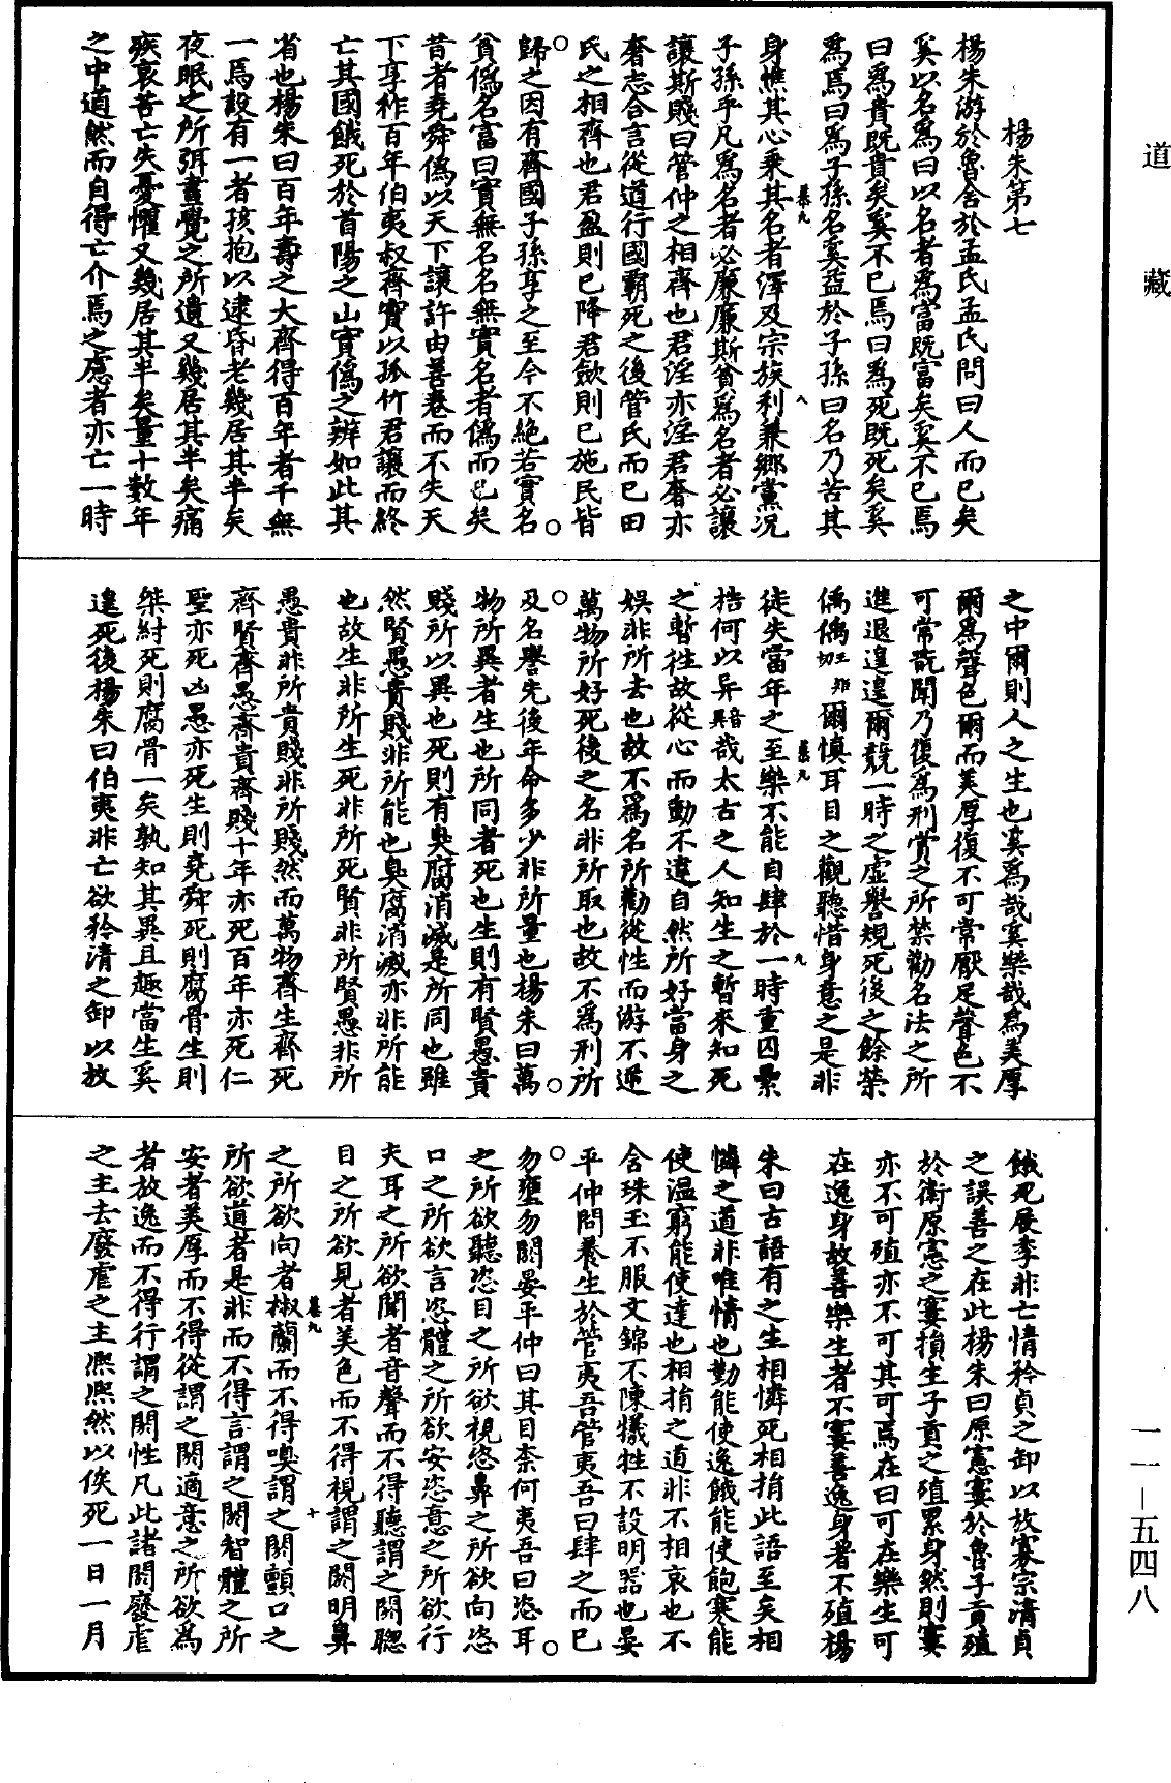 道藏
楊朱第七
楊朱游於魯舍於孟氏孟氏問曰人而已矣
奚以名爲曰以名者爲富既富矣奚不已焉
曰爲貴既貴矣奚不已焉曰爲死既死矣奚
爲焉曰爲子孫名奚益於子孫曰名乃苦其
八
身憔其心乘其名者澤及宗族利兼鄉黨况
子孫乎凡爲名者必廉廉斯貧爲名者必讓
讓斯賤曰管仲之相齊也君淫亦淫君奢亦
奢志合言從道行國霸死之後管氏而已田
氏之相齊也君盈則已降君歛則已施民皆
歸之因有齊國子孫享之至今不絕若實名
貧僞名富曰實無名名無實名者僞而已矣
昔者堯舜僞以天下讓許由善卷而不失天
下享祚百年伯夷叔齊實以孤竹君讓而終
亡其國餓死於首陽之山實僞之辨如此其
省也楊朱曰百年壽之大齊得百年者千無
一焉設有一者孩抱以逮昏老幾居其半矣
夜眠之所弭晝覺之所遺又幾居其半矣痛
疾哀苦亡失憂懼又幾居其半矣量十數年
之中逌然而自得亡介焉之慮者亦亡一時
之中爾則人之生也奚爲哉奚樂哉爲美厚
爾爲聲色爾而美厚復不可常厭足聲色不
可常翫聞乃復爲刑賞之所禁勸名法之所
進退遑遑爾競一時之虛譽規死後之餘榮
偊偊切王矩爾慎耳目之觀聽惜身意之是非
九
徒失當年之至樂不能自肆於一時重囚纍
梏何以异音異哉太古之人知生之暫來知死
之暫往故從心而動不違自然所好當身之
娛非所去也故不爲名所勸從性而游不逆
萬物所好死後之名非所取也故不爲刑所
及名譽先後年命多少非所量也楊朱曰萬
物所異者生也所同者死也生則有賢愚貴
賤所以異也死則有臭腐消滅是所同也雖
然賢愚貴賤非所能也臭腐消滅亦非所能
也故生非所生死非所死賢非所賢愚非所
愚貴非所貴賤非所賤然而萬物齊生齊死
齊賢齊愚齊貴齊賤十年亦死百年亦死仁
聖亦死凶愚亦死生則堯舜死則腐骨生則
桀紂死則腐骨腐骨一矣孰知其異且趣當生奚
遑死後楊朱曰伯夷非亡欲矜清之卸以放
餓死展季非亡情矜貞之卸以放寡宗清貞
之誤善之在此楊朱曰原憲窶於魯子貢殖
於衛原憲之窶損生子貢之殖累身然則窶
亦不可殖亦不可其可焉在曰可在樂生可
在逸身故善樂生者不窶善逸身者不殖楊
朱曰古語有之生相憐死相捐此語至矣相
憐之道非唯情也勤能使逸餓能使飽寒能
使溫窮能使達也相捐之道非不相哀也不
含珠玉不服文錦不陳犧牲不設明器也晏
平仲問養生於管夷吾管夷吾曰肆之而已
勿壅勿閼晏平仲曰其目柰何夷吾曰恣耳
之所欲聽恣目之所欲視恣鼻之所欲向恣
口之所欲言恣體之所欲安恣意之所欲行
夫耳之所欲聞者音聲而不得聽謂之閼聦
目之所欲見者美色而不得視謂之閼明鼻
十
之所欲向者椒蘭而不得嗅謂之閼顫口之
所欲道者是非而不得言謂之閼智體之所
安者美厚而不得從謂之閼適意之所欲爲
者放逸而不得行謂之閼性凡此諸閼廢虐
之主去廢虐之主熈熈然以俟死一日一月
一一—五四八